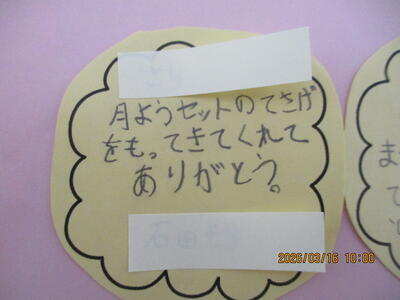 月ようセットのてさげ
をもってきてくれて
ありがとう。
2026/03/16 10:00